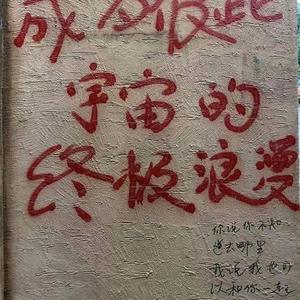 成为彼此
宇宙的
终极浪漫
你说你不知
道去哪里
我说我也可
以和你一起